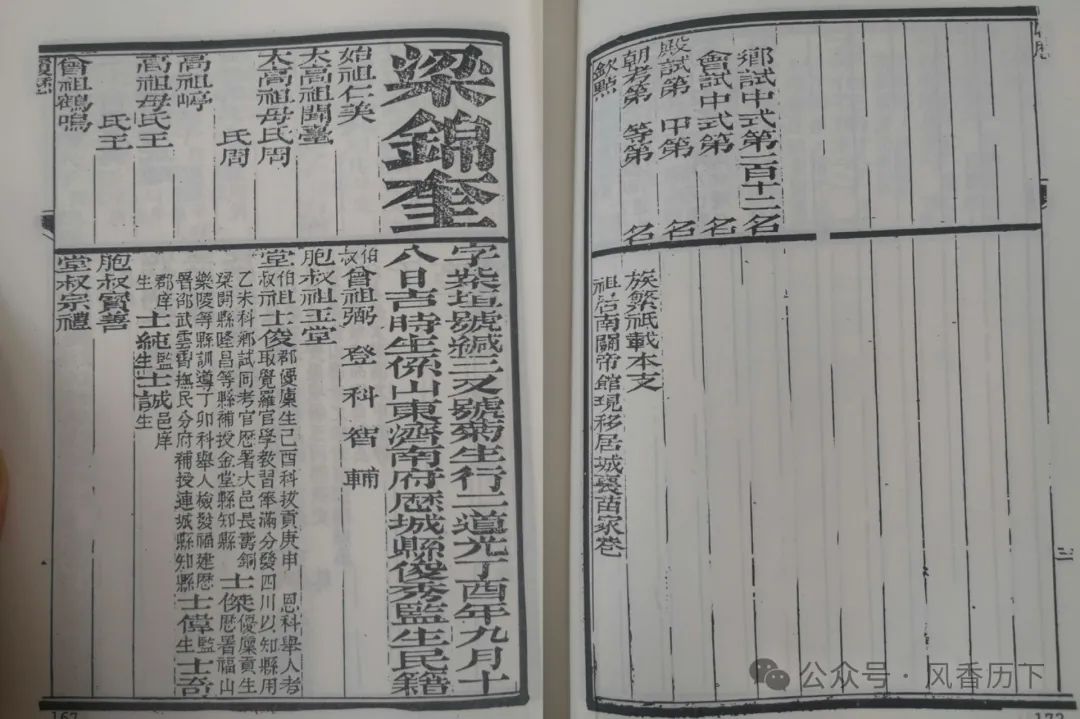 梁錦奎
始祖仁美
太高祖聞臺
太高祖母氏周
氏周
高祖崢
高祖母氏王
氏王
曾祖鶴鳴
履歷
字紫垣號緘三又號菊生行二道光丁酉年九月十
八日吉時生係山東濟南府歷城縣俊秀監生民籍
伯叔曾祖弼 登 科 智 輔
胞叔祖玉堂
堂伯叔祖士俊郡優廩生己酉科拔貢庚申 恩科舉人考
取覺羅官學教習奉滿分發四川以知縣用
乙未科鄉試同考官歷署大邑長壽銅
梁開縣隆昌等縣補授金堂縣知縣 士傑優廩貢生
歷署福山
樂陵等縣訓導丁卯科舉人檢發福建歷
署邵武雲霄撫民分府補授連城縣知縣士偉監生士奇
郡庠生士純監生士誠邑庠生
胞叔寶善
堂叔宗禮
鄉試中式第一百十二名
會試中式第 名
殿試第 甲第 名
朝考第 等第 名
欽點
族繁祇載本支
祖居南關帝館現移居城裏苗家巷
三
公众号·风香历下